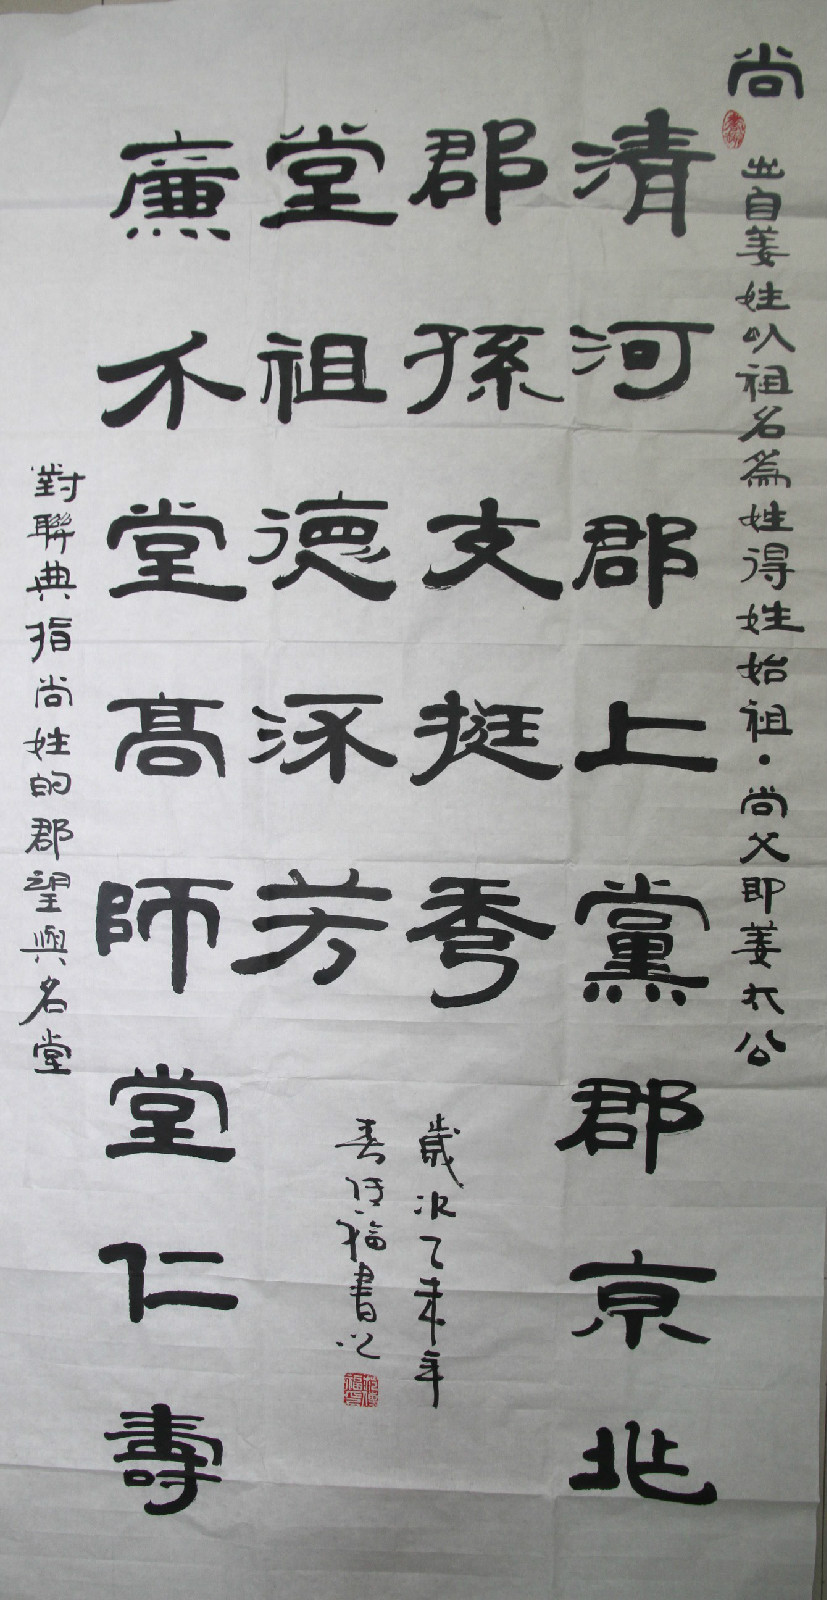 尚
出自姜姓以祖名爲姓得姓始祖·尚父即姜太公
清河郡上黨郡京兆
郡孫支挺秀
歲次乙未年
堂祖德流芳
春傳福書
廉不堂高師堂仁壽
對聯典指尚姓的郡望與名堂